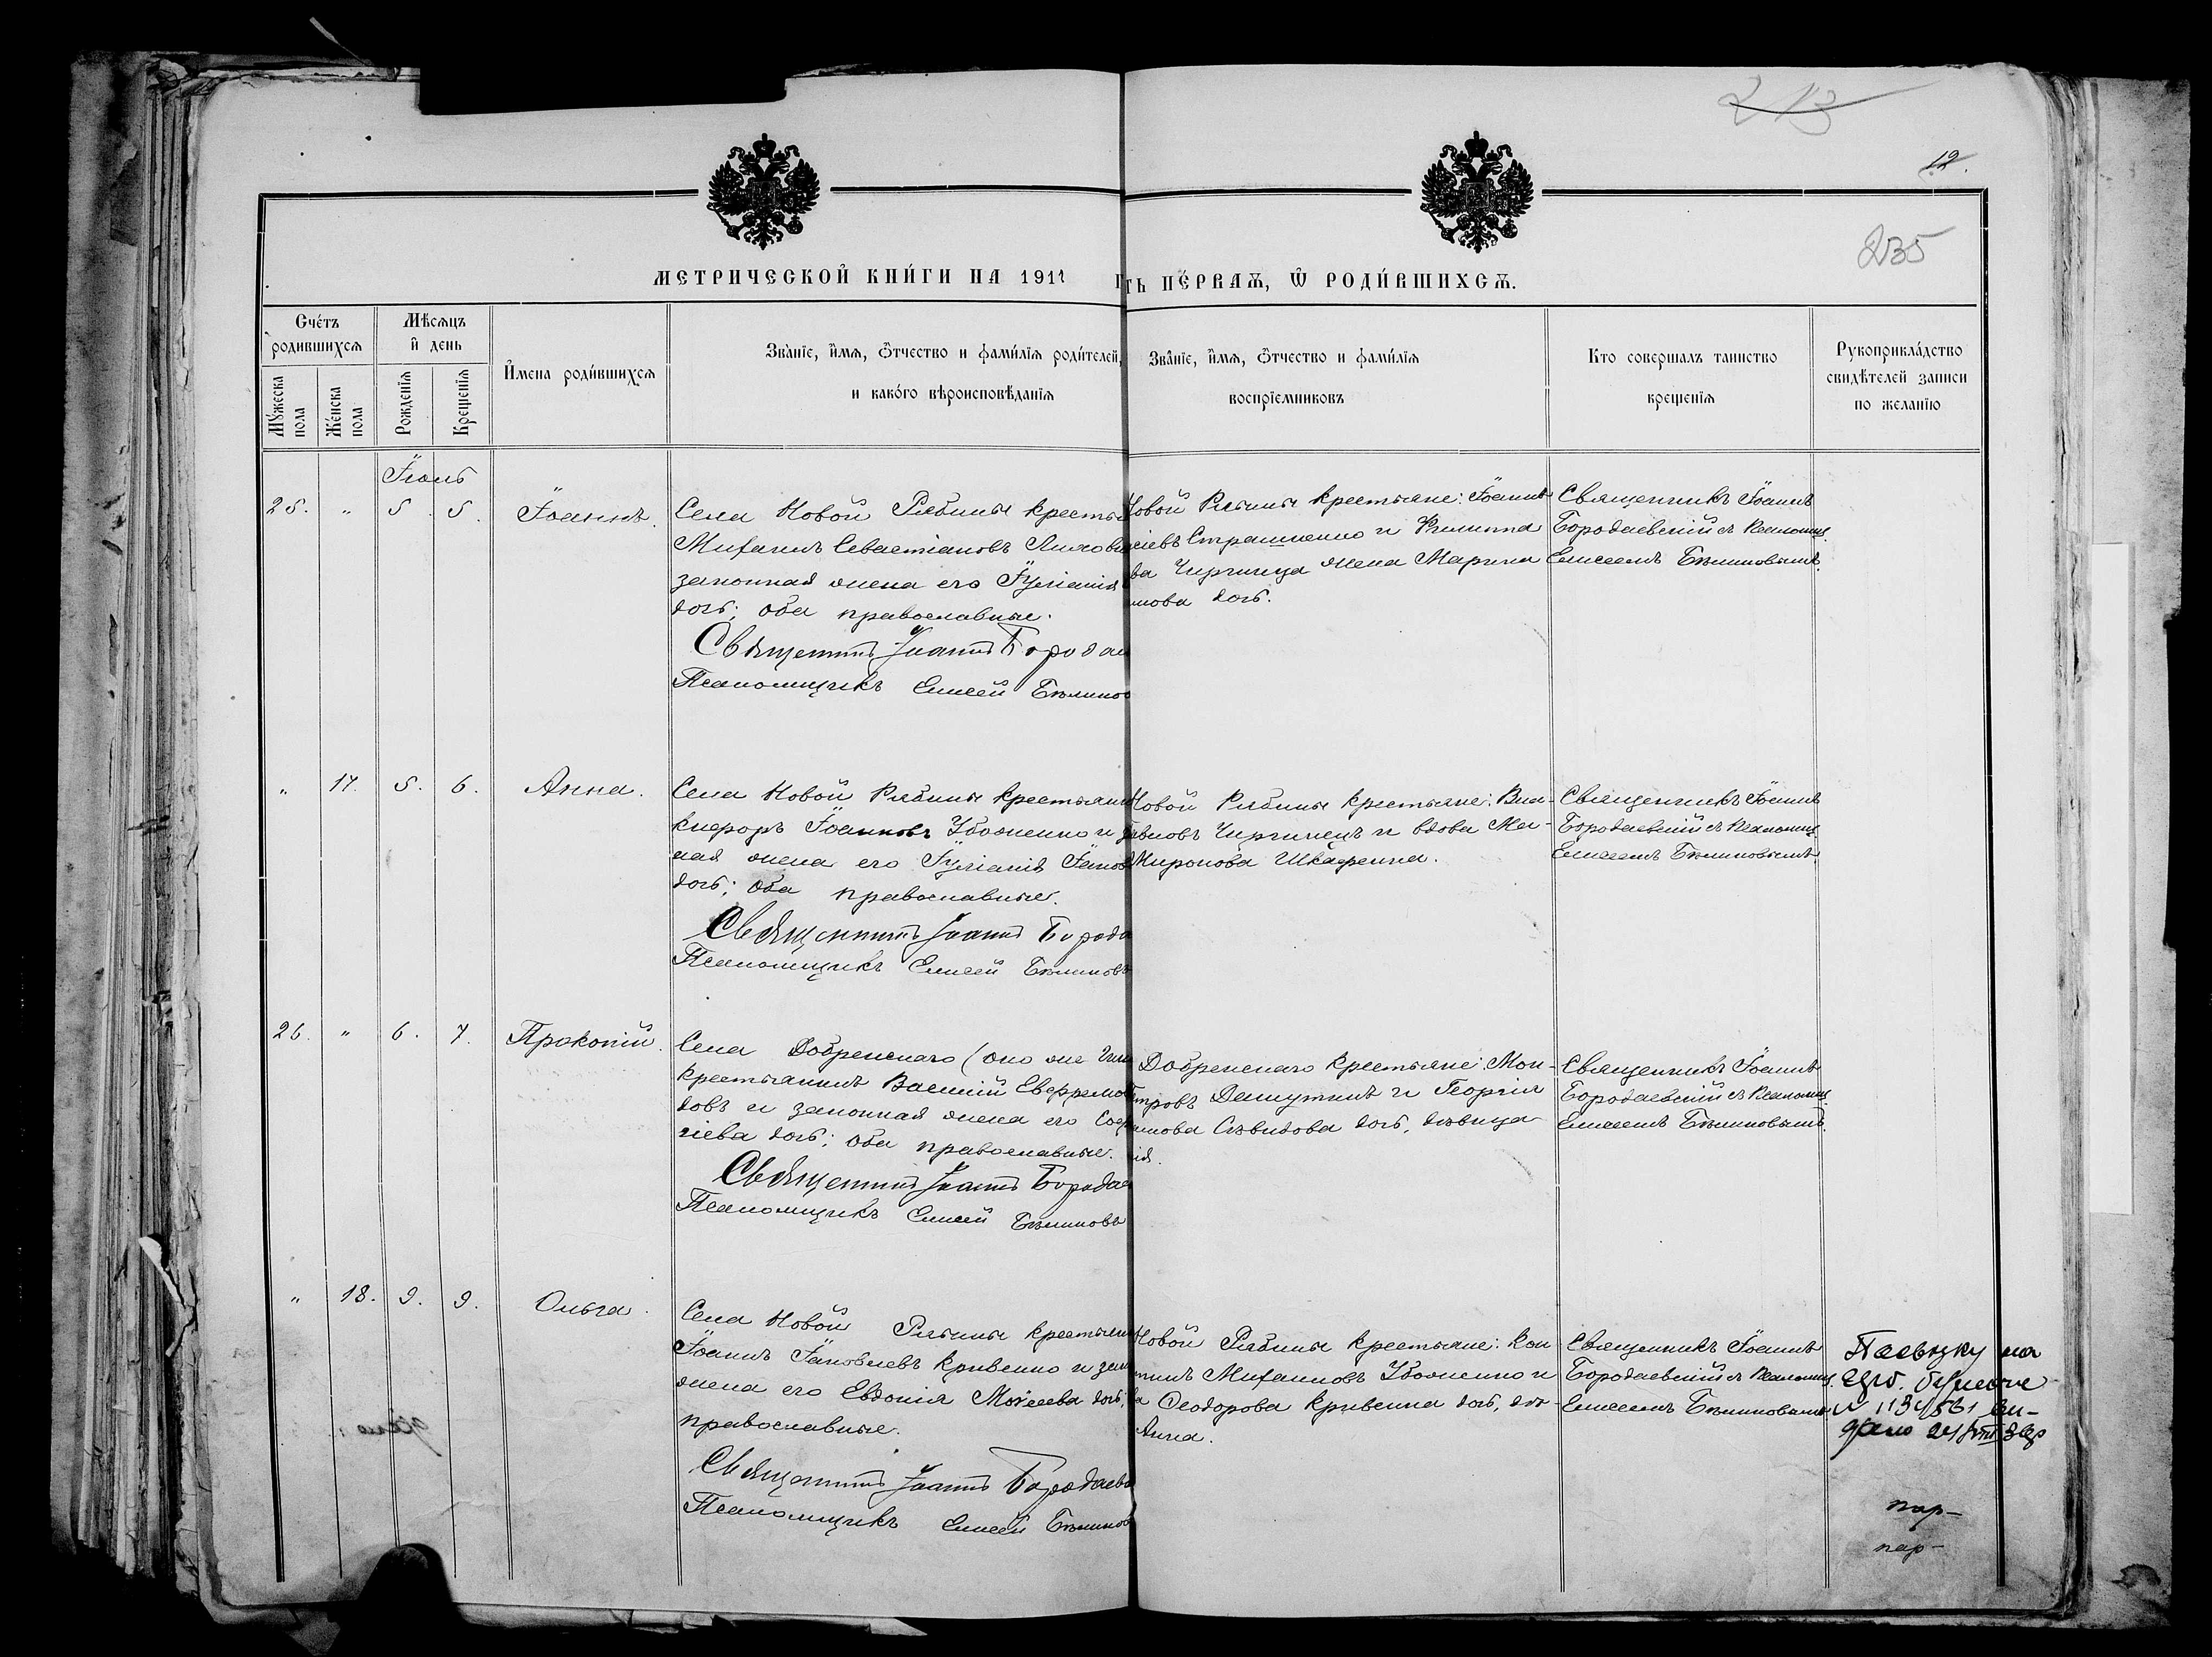 213
12.
235
МЕТРИЧЕСКОЙ КНИ́ГИ НА 1911
ть ПЕ́РВАѦ, Ѡ РОДИ́ВШИХСѦ.
Сче́тъ родившихсѧ
Мѣсѧцъ и день
Мꙋ́жеска пола
Же́нска пола
Рожденїѧ
Крещенїѧ
И́мена роди́вшихсѧ
Зва́нїе, и́мѧ, ѻ҆́тчество и фами́лїѧ роди́телей,
и како́го вѣроисповѣ́данїѧ
Зва́нїе, и́мѧ, ѻ҆́тчество и фами́лїѧ
воспрїемниковъ
Кто совершалъ таинство
крещенїѧ
Рукоприкла́дство
свидѣ́телей записи
по желанїю
Іюль
25. " 5. 5. Іоаннъ.
Села Новой Рябины кресть
Михаилъ Севастіановъ Лихов
законная жена его Іуліанія
дочь; оба православные.
Священникъ Іоаннъ Бородае
Псаломщикъ Елисей Бѣлинов
Новой Рябины крестьяне: Іоаннъ
сіевъ Страшненко и Филиппа
ва Чиргинца жена Марина
мова дочь.
Священникъ Іоаннъ
Бородаевскій съ Псаломщ.
Елисеемъ Бѣлиновымъ.
" 17. 5. 6. Анна.
Села Новой Рябины крестьянинъ
кифоръ Іоанновъ Убоженко и
ная жена его Іуліанія Іаков
дочь; оба православные.
Священникъ Іоаннъ Борода
Псаломщикъ Елисей Бѣлиновъ
Новой Рябины крестьяне: Вла-
вловъ Чиргинецъ и вдова Ма-
Миронова
Священникъ Іоаннъ
Бородаевскій съ Псаломщ.
Елисеемъ Бѣлиновымъ
26. " 6. 7. Прокопій.
Села Добренскаго (оно же
крестьянинъ Василій Ефремов
довъ и законная жена его Соф
гіева дочь; оба православные.
Священникъ Іоаннъ Бородае
Псаломщикъ Елисей Бѣлиновъ
Добренскаго крестьяне: Мои-
тровъ Дашутинъ и Георгія
мова Съвидова дочь, дѣвица
ія.
Священникъ Іоаннъ
Бородаевскій съ Псаломщ.
Елисеемъ Бѣлиновымъ.
" 18. 9. 9. Ольга.
Села Новой Рябины крестьянинъ
Іоаннъ Іаковлевъ Кривенко и зак
жена его Евдокія Моѵсеева дочь;
православные.
Священникъ Іоаннъ Бородаевс
Псаломщикъ Елисей Бѣлинов
Новой Рябины крестьяне: Кон
тинъ Михаиловъ Убоженко и
а Ѳеодорова Кривенка дочь, дѣ-
Анна.
Священникъ Іоаннъ
Бородаевскій съ Псаломщ.
Елисеемъ Бѣлиновымъ
на
пар-
пар-